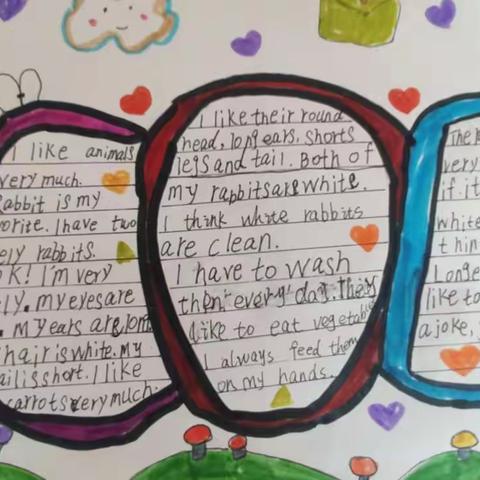 I like animals
very much.
Rabbit is my
vorite. I have two
ely rabbits.
OK! I'm very
ly. my eyes are
. my ears are long
hair is white. my
ail is short. I like
carrots very much.
I like their round
head, long ears, shorts
legs and tail. Both of
my rapbits are white.
I think white rabbits
are clean.
I have to wash
them every day. They
like to eat vegetab
I always feed them
on my hands.
The
very
if it
white
thin
Longe
like to
a joke,